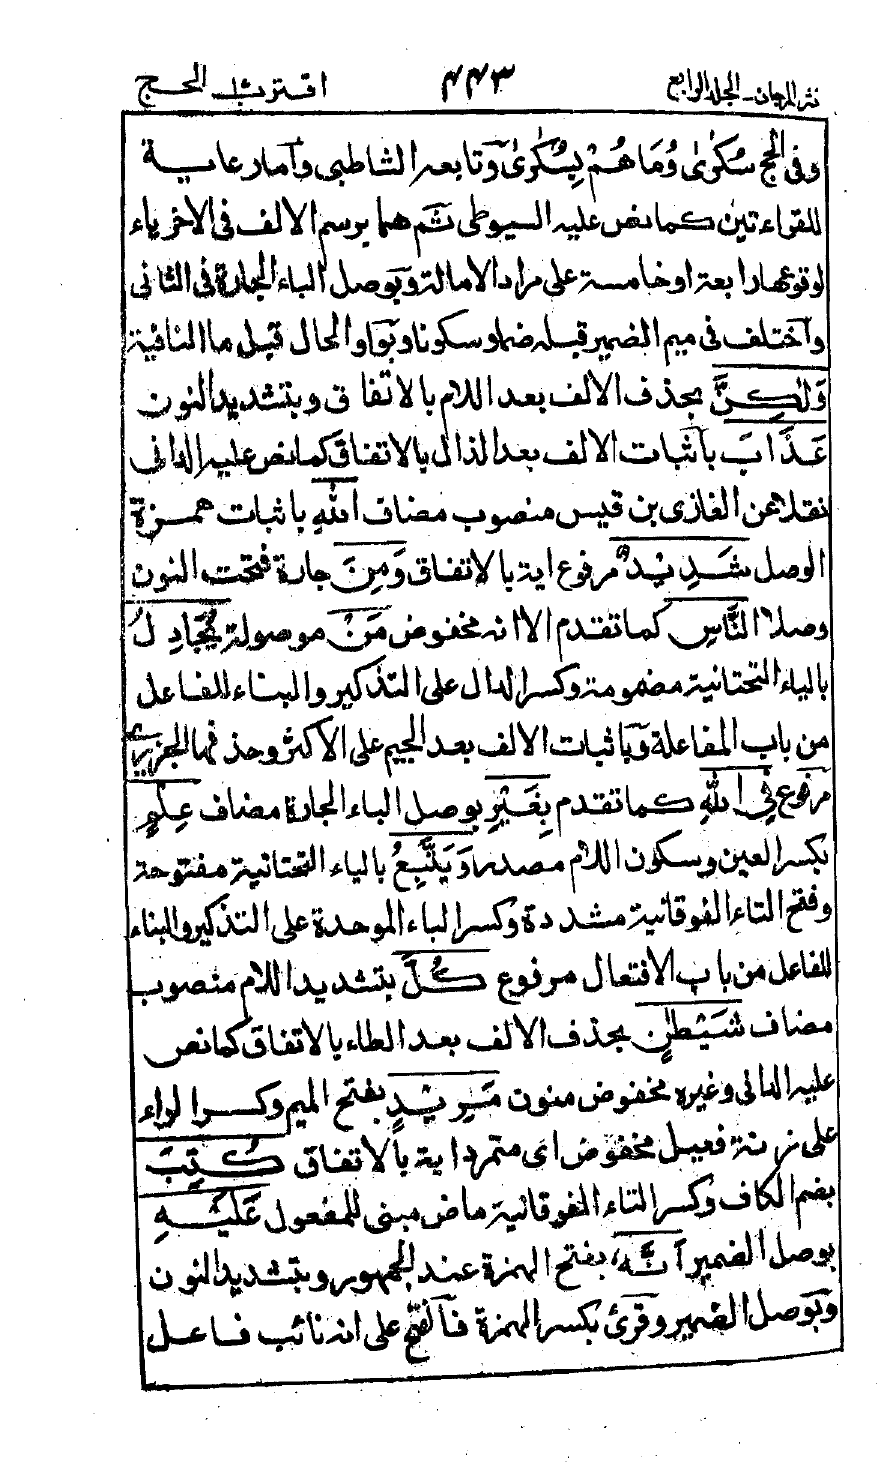 نثر المرجان ـ الجلد الرابع ٤٤٣ اقترب ١٧ الحج
وفى الحج سُكٰرٰى وَمَا هُمْ بِسُكٰرٰى وتابعه الشاطبى وامارعاية
للقراءتين كما نص عليه السيوطى ثم هما برسم الالف فى الاخرياء
لوقوعها رابعة او خامسة على مراد الامالة وبوصل الباء الجارة فى الثانى
واختلف فى ميم الضمير قبله ضما وسكونا وبواو الحال قبل ما النافية
وَلٰكِنَّ بحذف الالف بعد اللام بالاتفاق وبتشديد النون
عَذَابَ باثبات الالف بعد الذال بالاتفاق كما نص عليه الدانى
نقلا عن الغازى بن قيس منصوب مضاف اللهِ باثبات همزة
الوصل شَدِيْدٌ مرفوع اية بالاتفاق وَمِنَ جارة فتحت النون
وصلا النَّاسِ كما تقدم الا انه مخفوض مَنْ موصولة يُّجَادِلُ
بالياء التحتانية مضمومة وكسر الدال على التذكير والبناء للفاعل
من باب المفاعلة وباثبات الالف بعد الجيم على الاكثر وحذفها الجزرى
مرفوع فِى اللهِ كما تقدم بِغَيْرِ بوصل الباء الجارة مضاف عِلْمٍ
بكسر العين وسكون اللام مصدر وَيَتَّبِعُ بالياء التحتانية مفتوحة
وفتح التاء الفوقانية مشددة وكسر الباء الموحدة على التذكير والبناء
للفاعل من باب الافتعال مرفوع كُلَّ بتشديد اللام منصوب
مضاف شَيْطٰنٍ بحذف الالف بعد الطاء بالاتفاق كما نص
عليه الدانى وغيره مخفوض منون مَّرِيْدٍ بفتح الميم وكسر الراء
على زنة فعيل مخفوض اى متمرد اية بالاتفاق كُتِبَ
بضم الكاف وكسر التاء الفوقانية ماض مبنى للمفعول عَلَيْهِ
بوصل الضمير اَنَّهٗ بفتح الهمزة عند الجمهور وبتشديد النون
وبوصل الضمير وقرئ بكسر الهمزة فالفتح على انه نائب فاعل